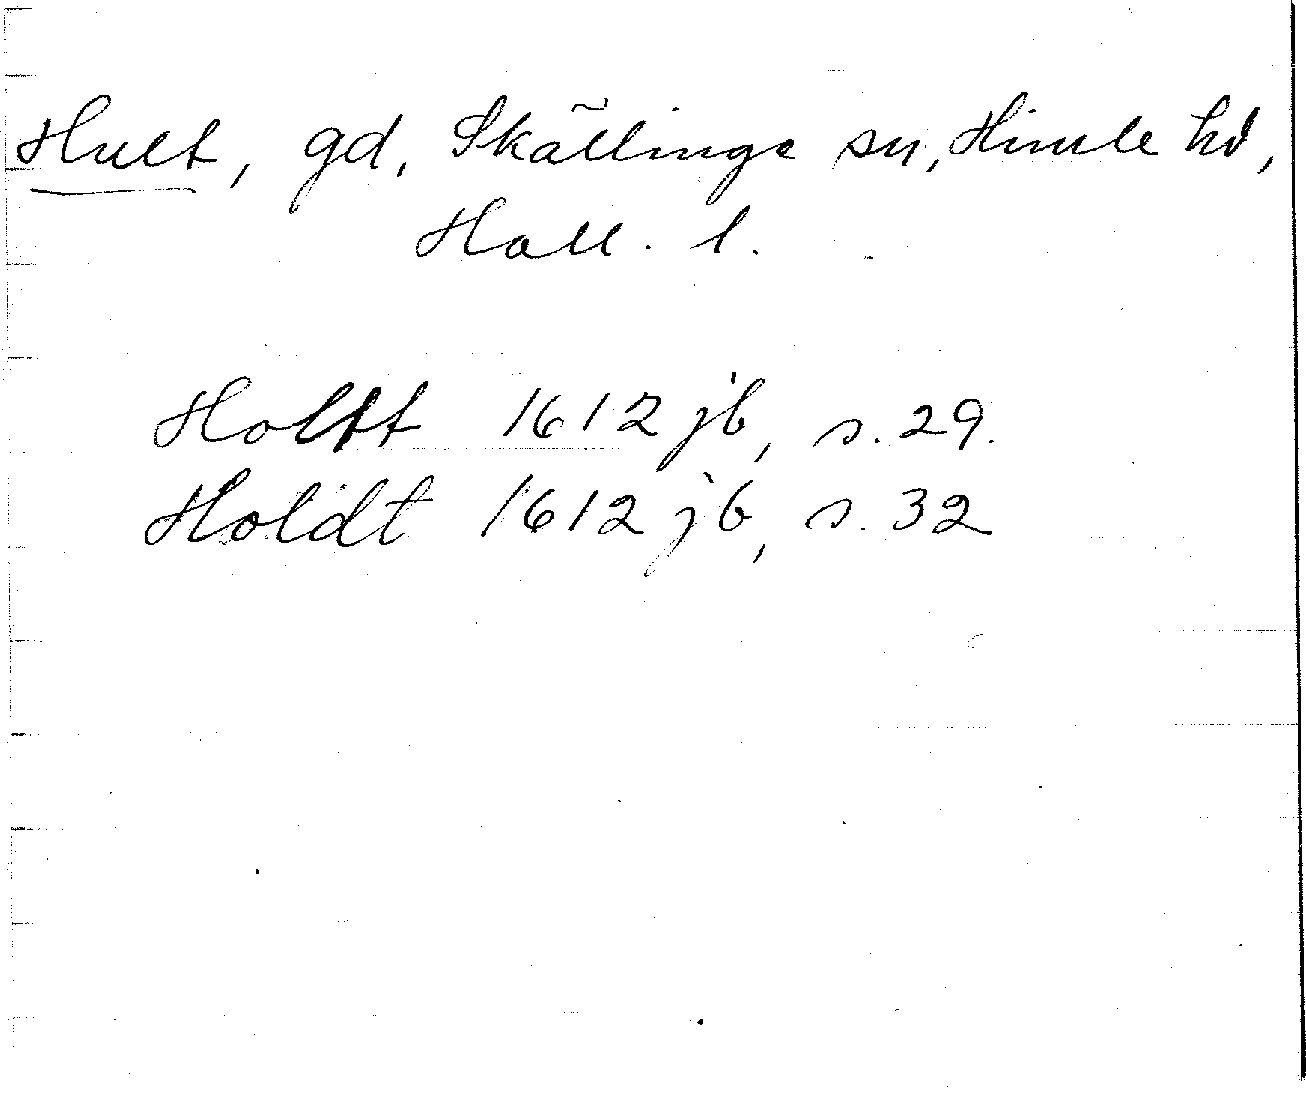 Hult, gd, Skällinge sn, Himle hd,
Hall. l.
Holtt 1612 jb, s. 29.
Holdt 1612 jb, s. 32